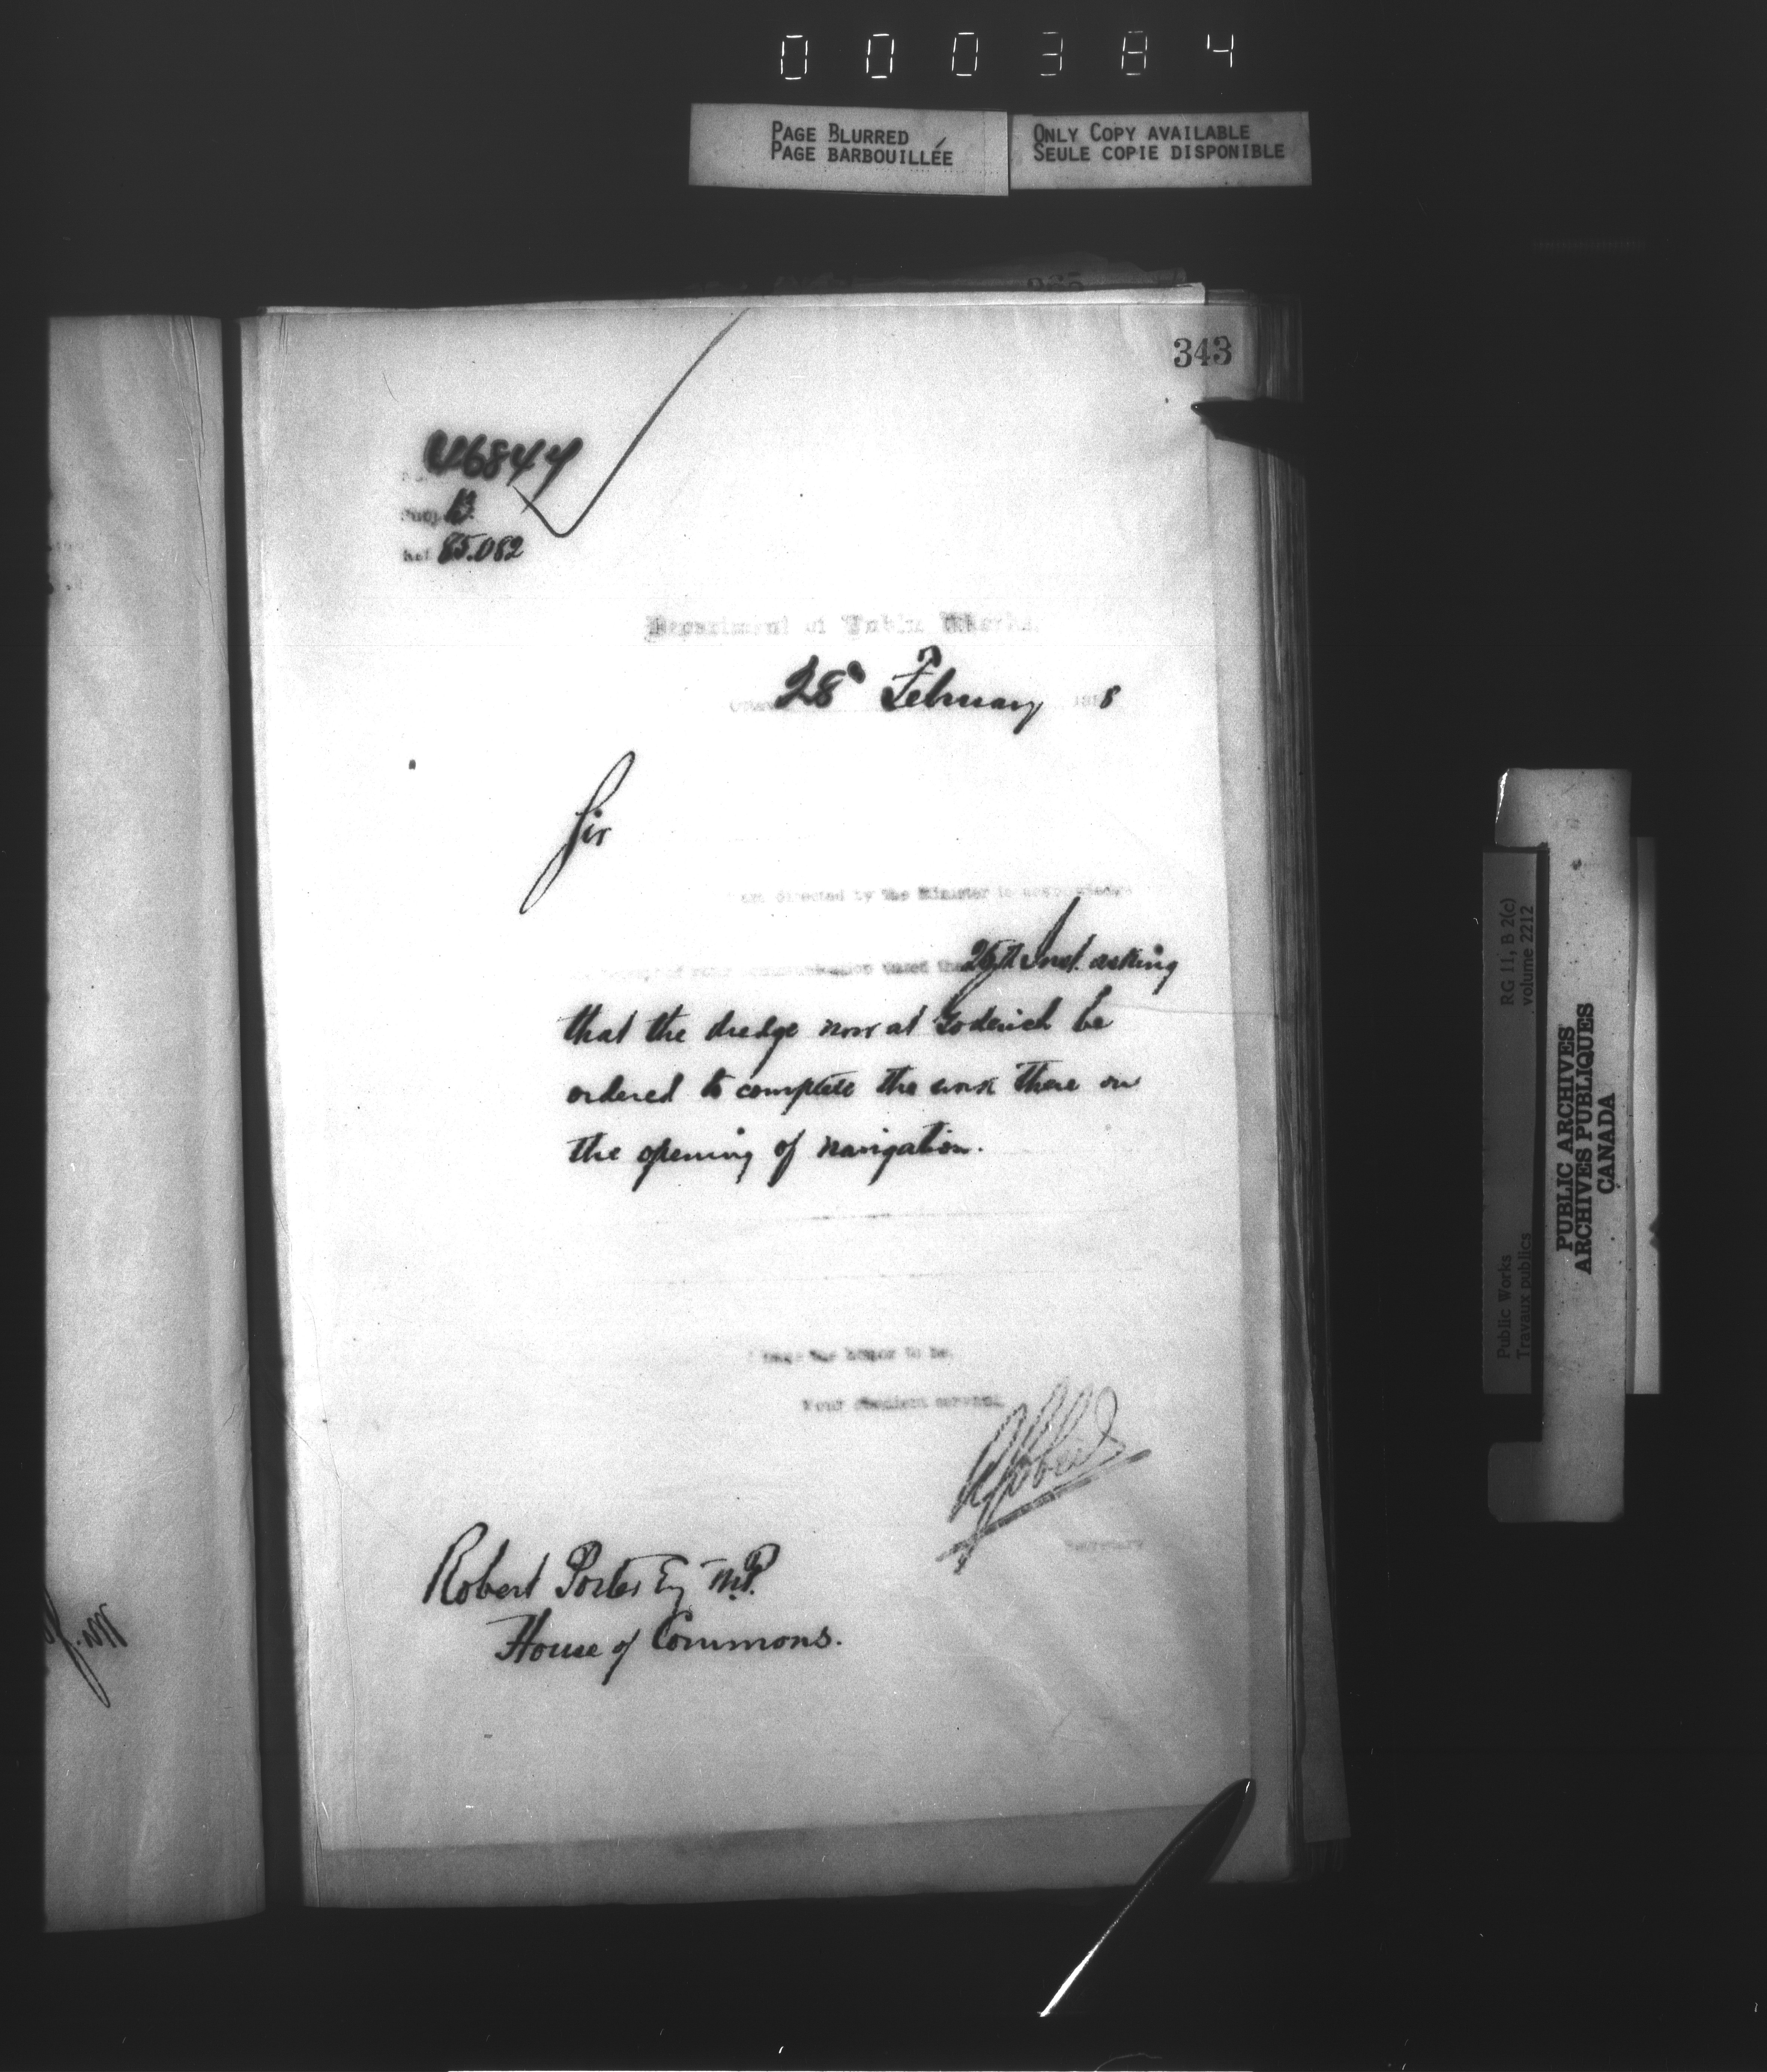 000384
PAGE BLURRED
PAGE BARBOUILLÉE
ONLY COPY AVAILABLE
SEULE COPIE DISPONIBLE
343
46844
Subj. B.
Ref 85.082
Department of Public Works.
28 February 188
Sir
am directed by the Minister to acknowledge
your communication dated the 25th Inst. asking
that the dredge now at Goderich be
ordered to complete the work there on
the opening of navigation.
I have the honor to be,
Your obedient servant,
Secretary
Robert Porter Esq M.P.
House of Commons.
RG 11, B 2(c)
volume 2212
Public Works
Travaux publics
PUBLIC ARCHIVES
ARCHIVES PUBLIQUES
CANADA